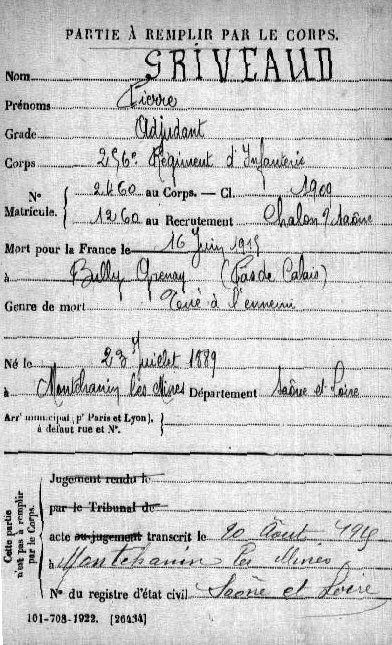 PARTIE À REMPLIR PAR LE CORPS.
Nom GRIVEAUD
Prénoms Pierre
Grade Adjudant
Corps 256e Régiment d'Infanterie
N° Matricule. { 2460 au Corps. — Cl. 1900
1260 au Recrutement Chalon s/ Saône
Mort pour la France le 16 Juin 1915
à Bully Grenay (Pas de Calais)
Genre de mort Tué à l'ennemi
Né le 23 Juillet 1889
à Montchanin les Mines Département Saône et Loire
Arrt municipal (pr Paris et Lyon), à défaut rue et N°. }
Cette partie n'est pas à remplir par le Corps. {
Jugement rendu le
par le Tribunal de
acte ou jugement transcrit le 20 Août 1915
à Montchanin les Mines
N° du registre d'état civil Saône et Loire
101-708-1922. [26434]